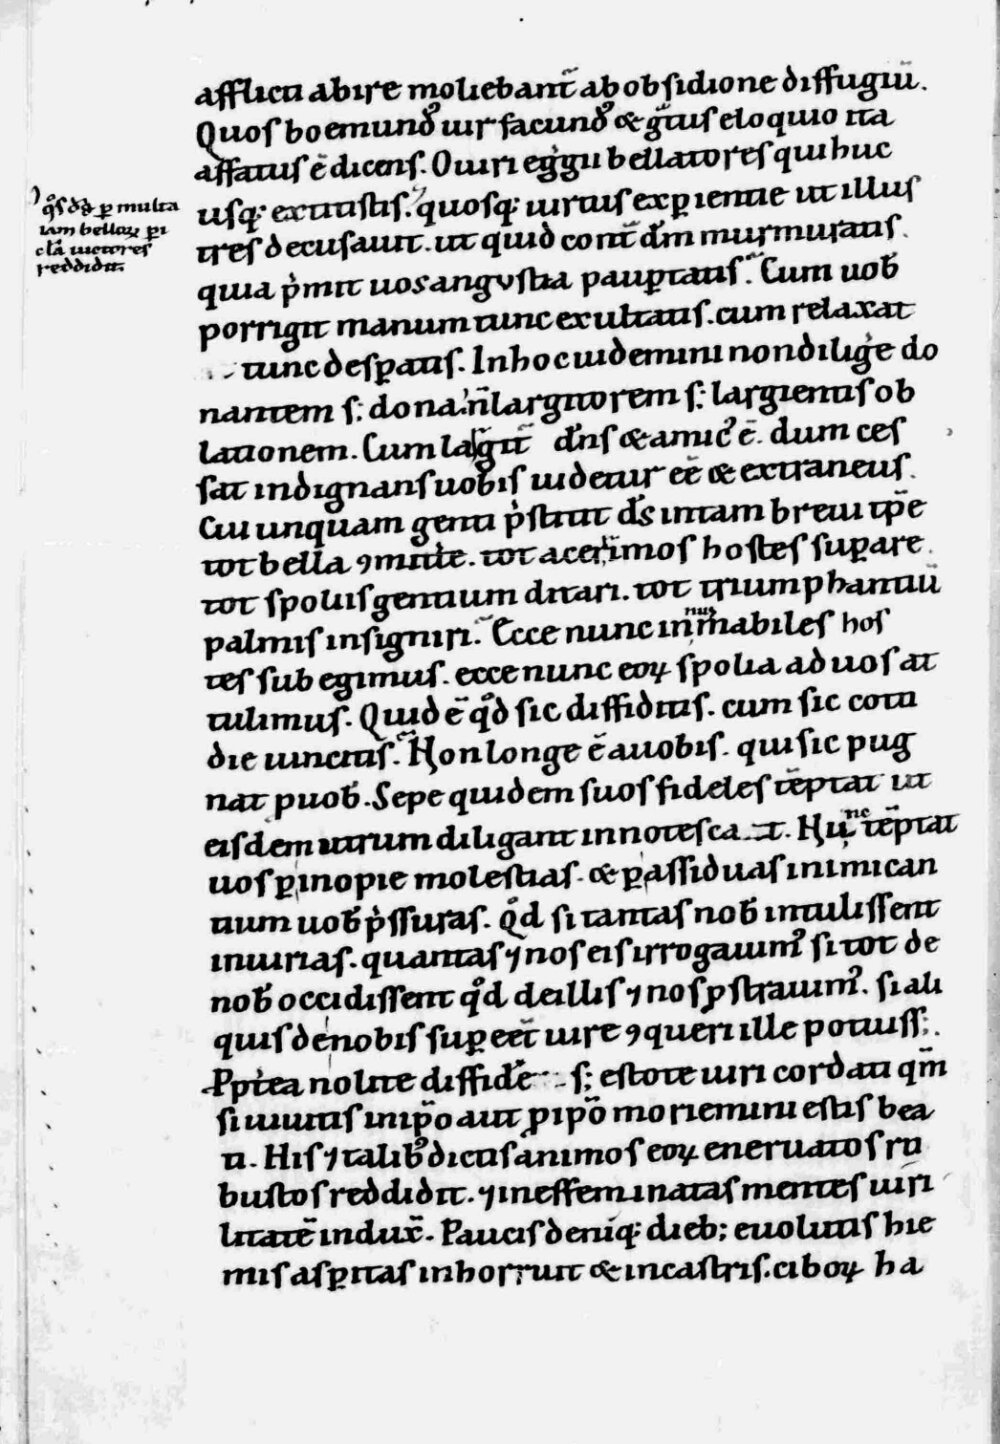 afflicti abire moliebant̄ ab obsidione diffugiū.
Quos boemund᷒ uir facund᷒ & g̃tus eloquio ita
affatus ē dicens. O uiri egg̍ii bellatores qui huc
usq; extitistis. quosq; uirtus exꝑientie ut illus
tres decusauit. ut quid cont̄ dm̄ murmuratis.
quia p̍mit uos angustia pauꝑtatis. Cum uob̄
porrigit manum tunc exultatis. cum relaxat
tunc desꝑatis. In hoc uidemini non dilig̍e do
nantem s; dona. n̄ largitorem s; largientis ob
lationem. Cum lagit̄ dn̄s & amic᷒ ē. dum ces
sat indignans uobis uidetur eē & extraneus.
Cui unquam genti p̍stitit ds̄ in tam breui tp̄e
tot bella ꝯmitte. tot acerrimos hostes suꝑare.
tot spoliis gentium ditari. tot triumphantiū
palmis insigniri. Ecce nunc innumabiles hos
tes subegimus. ecce nunc eoꝝ spolia ad uos at
tulimus. Quid ē qd̊ sic diffiditis. cum sic coti
die uincitis. Non longe ē a uobis. qui sic pug
nat p uob̄. Sepe quidem suos fideles tēptat ut
eisdem utrum diligant innotescat. Nunc tēptat
uos ꝑ inopie molestias. & ꝑ assiduas inimican
tium uob̄ p̍ssuras. Qd̊ si tantas nob̄ intulissent
iniurias. quantas ⁊ nos eis irrogauim᷒. si tot de
nob̄ occidissent qd̊ de illis ⁊ nos ꝓstrauim᷒. si ali
quis de nobis suꝑeēt iure ꝯqueri ille potuiss;.
Ppt̍ea nolite diffid̍e s; estote uiri cordati qm̄
si uiuitis in ipo̅ aut ꝓ ipo̅ moriemini estis bea
ti. His ⁊ talib᷒ dictis animos eoꝝ eneruatos ro
bustos reddidit. ⁊ ineffeminatas mentes uiri
litatē indux̄. Paucis deniq; dieb; euolutis hie
mis asꝑitas inhorruit & in castris. ciboꝝ ha
qo̊s ds̄ ꝑ multa
iam belloꝝ ꝑi
cl̄a uictores
reddidit.